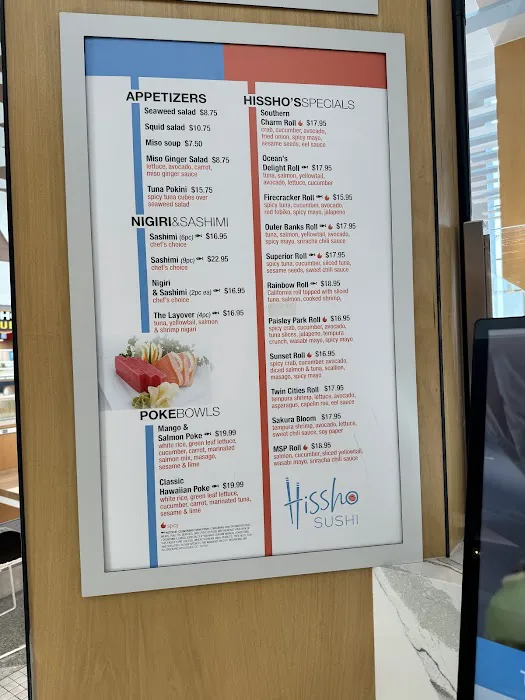 APPETIZERS
Seaweed salad $8.75
Squid salad $10.75
Miso soup $7.50
Miso Ginger Salad $8.75
lettuce, avocado, carrot,
miso ginger sauce
Tuna Pokini $15.75
spicy tuna cubes over
seaweed salad
NIGIRI&SASHIMI
Sashimi (6pc) $16.95
chef's choice
Sashimi (9pc) $22.95
chef's choice
Nigiri
& Sashimi (2pc ea) $16.95
chef's choice
The Layover (4pc) $16.95
tuna, yellowtail, salmon
& shrimp nigiri
POKEBOWLS
Mango &
Salmon Poke $19.99
white rice, green leaf lettuce,
cucumber, carrot, marinated
salmon mix, masago,
sesame & lime
Classic
Hawaiian Poke $19.99
white rice, green leaf lettuce,
cucumber, carrot, marinated tuna,
sesame & lime
spicy
HISSHO'SSPECIALS
Southern
Charm Roll $17.95
crab, cucumber, avocado,
fried onion, spicy mayo,
sesame seeds, eel sauce
Ocean's
Delight Roll $17.95
tuna, salmon, yellowtail,
avocado, lettuce, cucumber
Firecracker Roll $15.95
spicy tuna, cucumber, avocado,
red tobiko, spicy mayo, jalapeno
Outer Banks Roll $17.95
tuna, salmon, yellowtail, avocado,
spicy mayo, sriracha chili sauce
Superior Roll $17.95
spicy tuna, cucumber, sliced tuna,
sesame seeds, sweet chili sauce
Rainbow Roll $18.95
California roll topped with sliced
tuna, salmon, cooked shrimp,
Paisley Park Roll $16.95
spicy crab, cucumber, avocado,
tuna slices, jalapeno, tempura
crunch, wasabi mayo, spicy mayo
Sunset Roll $16.95
spicy crab, cucumber, avocado,
diced salmon & tuna, scallion,
masago, spicy mayo
Twin Cities Roll $17.95
tempura shrimp, lettuce, avocado,
asparagus, capelin roe, eel sauce
Sakura Bloom $17.95
tempura shrimp, avocado, lettuce,
sweet chili sauce, soy paper
MSP Roll $18.95
salmon, cucumber, sliced yellowtail,
wasabi mayo, sriracha chili sauce
Hissho
SUSHI